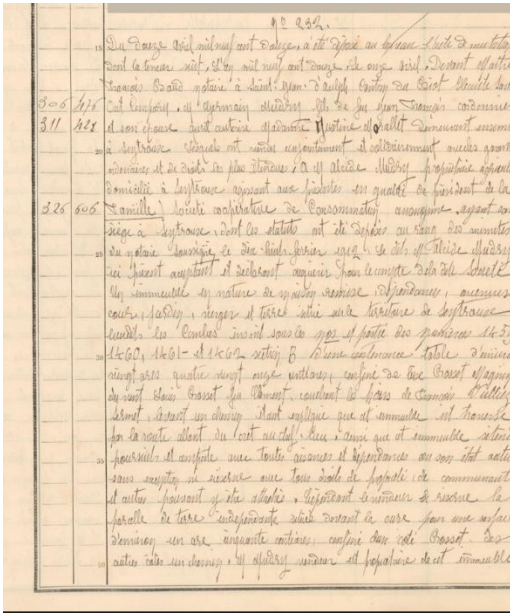 N° 232.
15 Du douze avril mil neuf cent douze, a été déposé au bureau l'acte de mutation
dont la teneur suit. L'an mil neuf cent douze, le onze avril, Devant Maître
François notaire à Saint-Jean-d'Aulph, canton du Biot Haute Savoie
306 476 Ont comparu, M Germain Mudry fils de feu Jean François cordonnier
311 421 et son épouse autorisée Madame Justine Morallet demeurant ensemble
20 à Seytroux lesquels ont vendu conjointement et solidairement avec les garanties
ordinaires et de droit les plus étendues, à M Alcide Mudry propriétaire agriculteur
domicilié à Seytroux agissant aux présentes en qualité de président de la
326 606 Famille, société coopérative de Consommation anonyme ayant son
siège à Seytroux, dont les statuts ont été déposés au rang des minutes
25 du notaire soussigné le dix-huit février 1912, le dit M Alcide Mudry
ici présent acceptant et déclarant acquérir pour le compte de la dite Société
Un immeuble en nature de maison remise, dépendances,
cour, jardin, verger et terre situé sur le territoire de Seytroux
lieudit les Combes inscrit sous les nos et partie des numéros 1459
30 1460, 1461 et 1462 section B d'une contenance totale d'environ
vingt ares quatre vingt onze centiares, confiné de Cosset
du vent Louis Cosset feu Clément, couchant les hoirs de François
bornet, levant un chemin. Etant expliqué que cet immeuble est traversé
par la route allant du crêt au clef. Tel ainsi que cet immeuble
35 poursuit et comporte avec toutes aisances et dépendances en son état actuel
sans exception ni réserve avec tous droits de propriété, de communauté
et autres pouvant y être attachés. Cependant le vendeur se réserve la
parcelle de terre indépendante située devant la cure pour une surface
d'environ un are cinquante centiares, confiné d'un côté Cosset des
40 autres côtés un chemin. M Mudry vendeur est propriétaire de cet immeuble